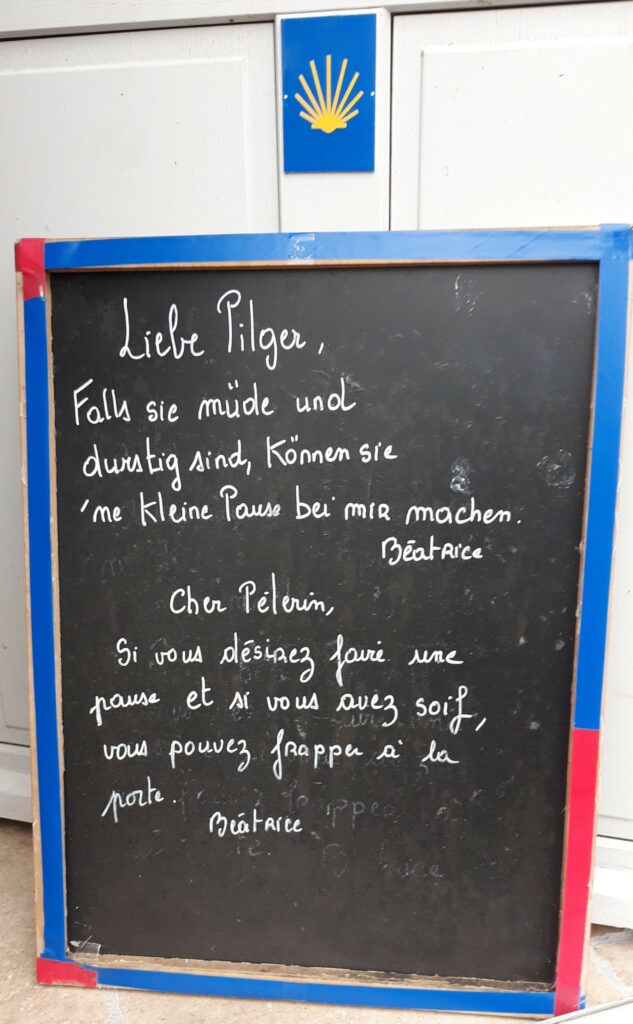 Liebe Pilger,
Falls sie müde und
durstig sind, können sie
'ne kleine Pause bei mir machen.
Béatrice
Cher Pélerin,
Si vous désirez faire une
pause et si vous avez soif,
vous pouvez frapper à la
porte.
Béatrice